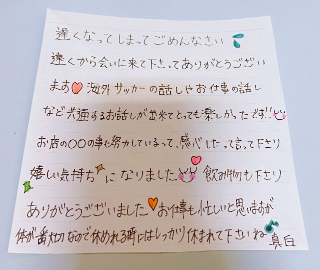 遅くなってしまってごめんなさい
遠くから会いに来て下さってありがとうござい
ます 海外サッカーの話しやお仕事の話し
など共通するお話しが出来てとっても楽しかったです!!
お店の〇〇の事も努力しているって、感心したって言って下さり
嬉しい気持ちになりました 飲み物も下さり
ありがとうございました お仕事も忙しいと思いますが
体が番なので休める時にはしっかり休まれて下さいね 真白